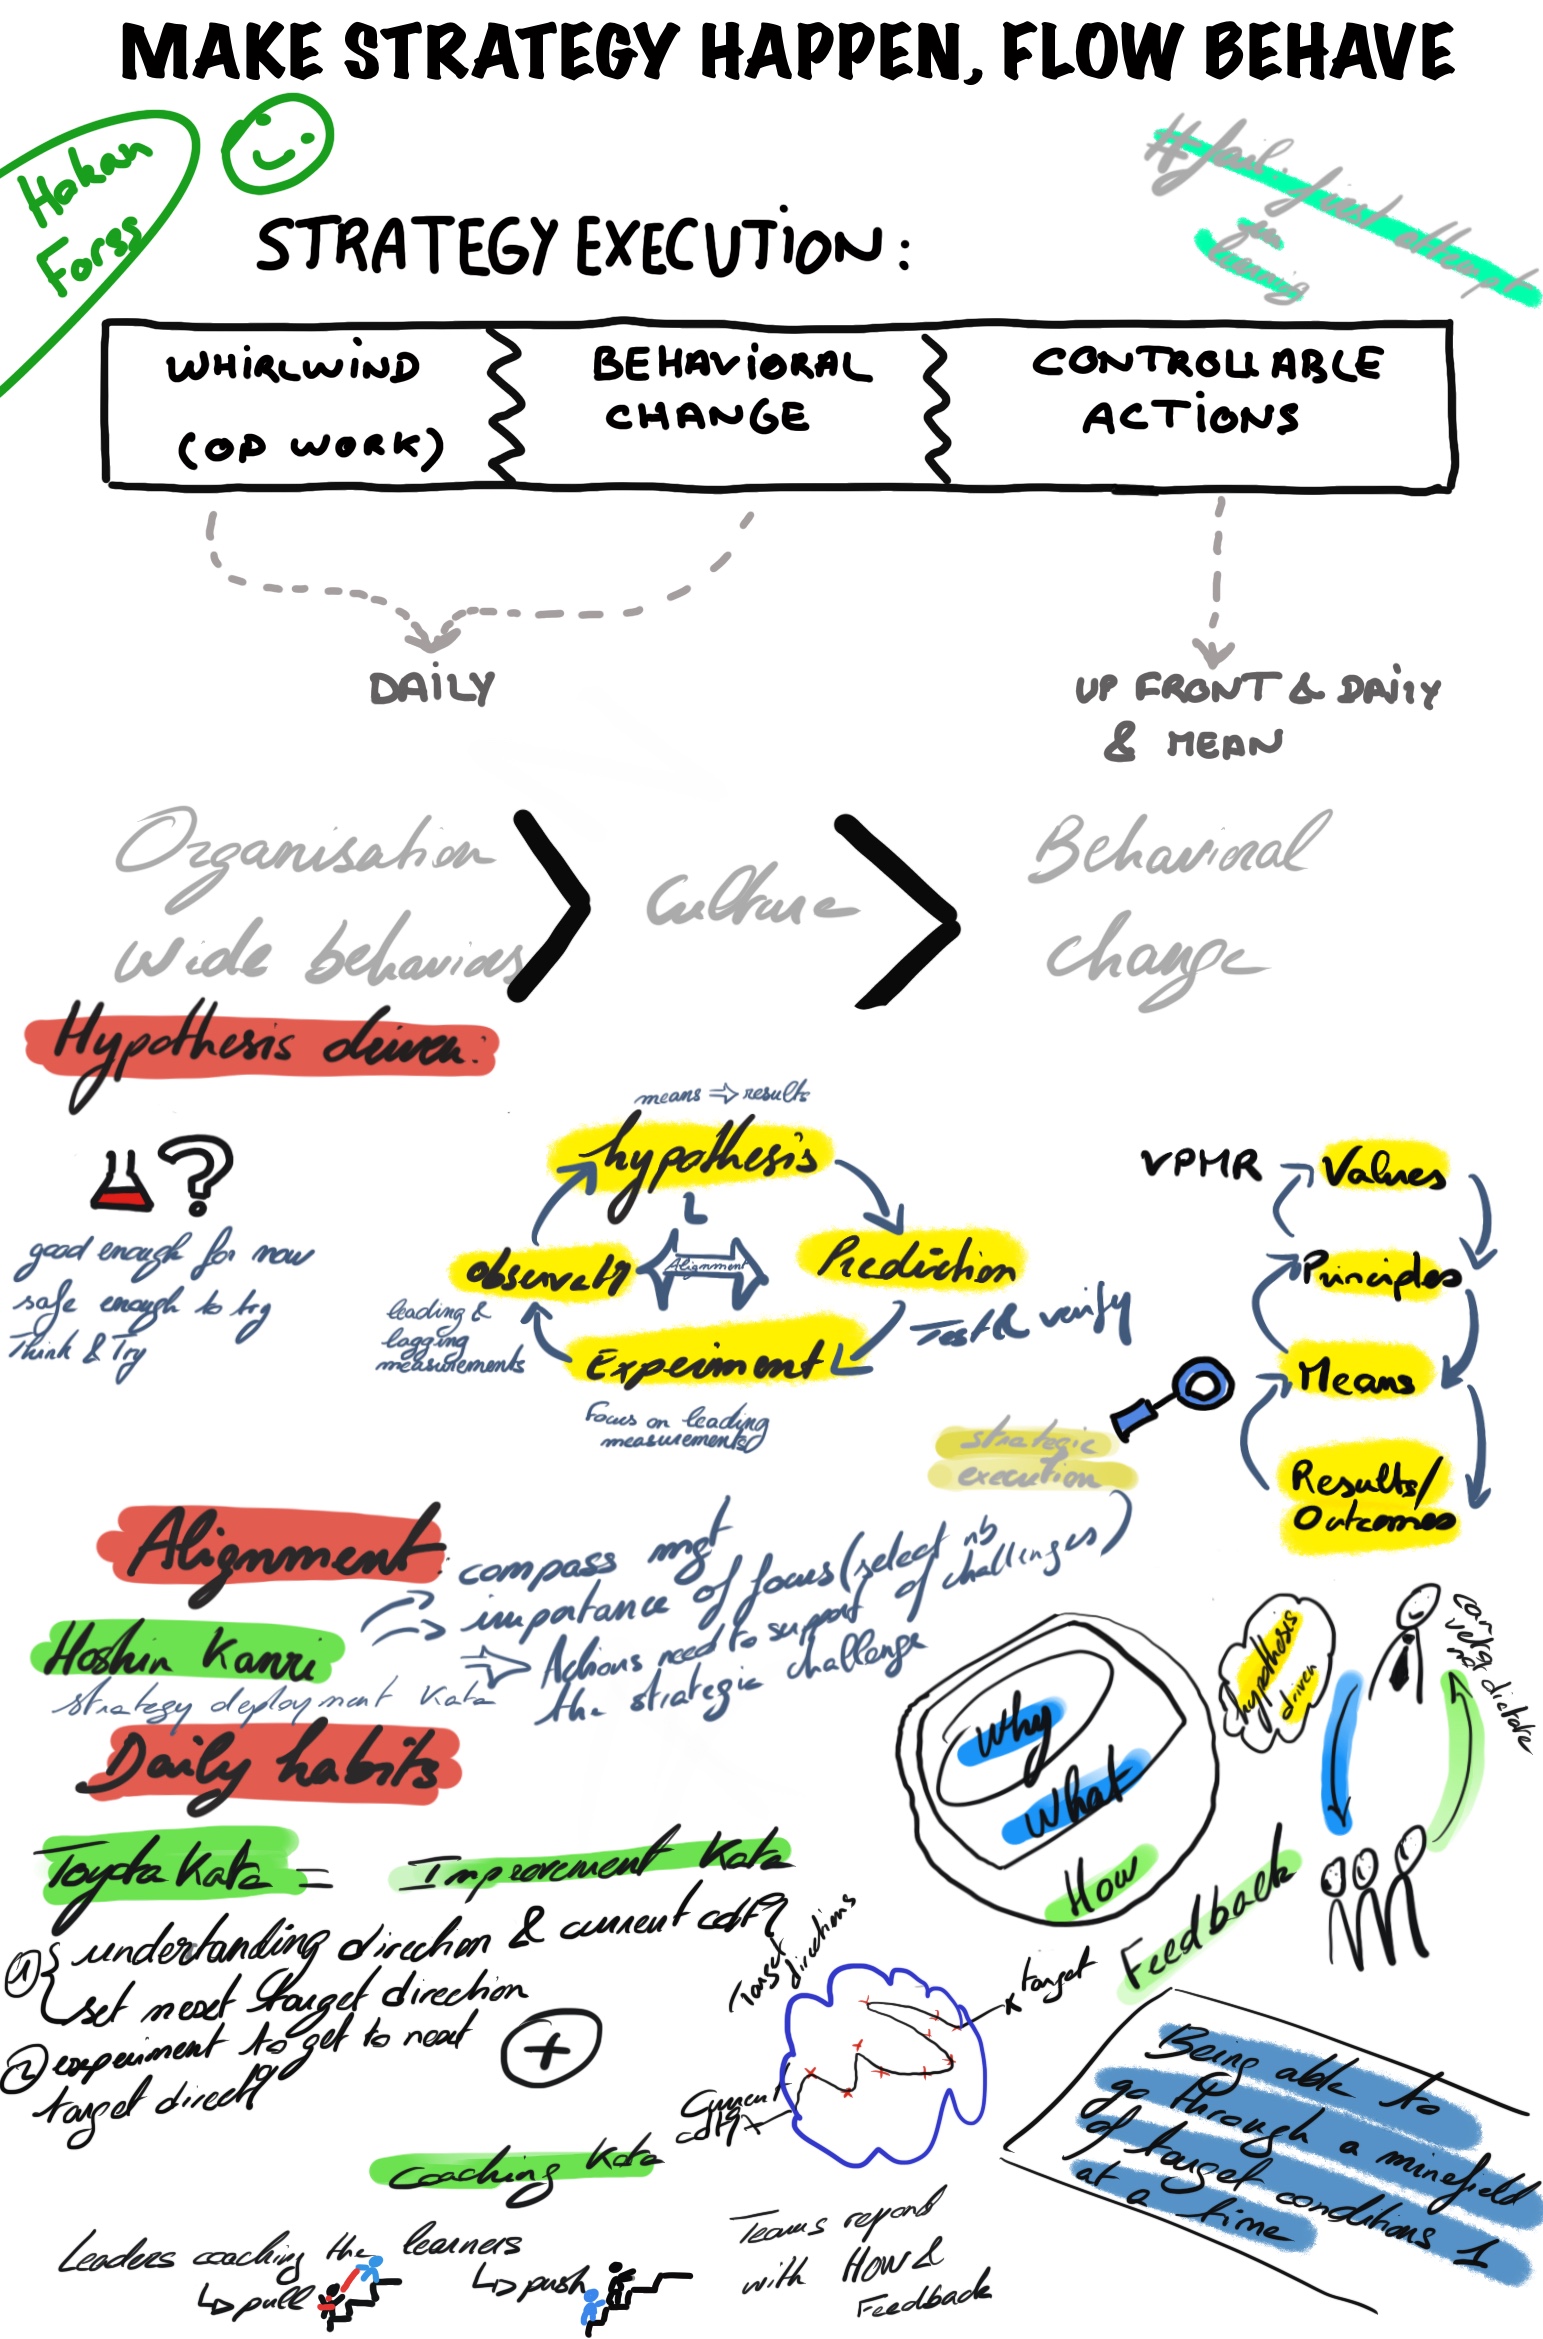 MAKE STRATEGY HAPPEN, FLOW BEHAVE
Hakan
Forss
#fail. first attempt
in
learning
STRATEGY EXECUTION:
WHIRLWIND
(OP WORK)
BEHAVIORAL
CHANGE
CONTROLLABLE
ACTIONS
DAILY
UP FRONT & DAILY
& MEAN
Organisation
wide behaviors
Culture
Behavioral
change
Hypothesis driven:
means ⇒ results
hypothesis
Prediction
Test & verify
Experiment
Focus on leading
measurements
observat°
leading &
lagging
measurements
Alignment
good enough for now
safe enough to try
Think & Try
VPMR
Values
Principles
Means
Results/
Outcomes
strategic
execution
Alignment:
compass mgt
importance of focus (select nb
of challenges)
⇒ Actions need to support
the strategic challenge
Hoshin Kanri
strategy deployment Kata
Daily habits
Why
What
How
hypothesis
driven
not dictate
Feedback
Toyota Kata =
Improvement Kata
1 understanding direction & current cdt°
set next target direction
2 experiment to get to next
target direct°
+
Target
directions
x target
Current
cdt° x
Being able to
go through a minefield
of target conditions 1
at a time
Coaching Kata
Leaders coaching the learners
↳ pull
↳ push
Teams report
with How &
Feedback